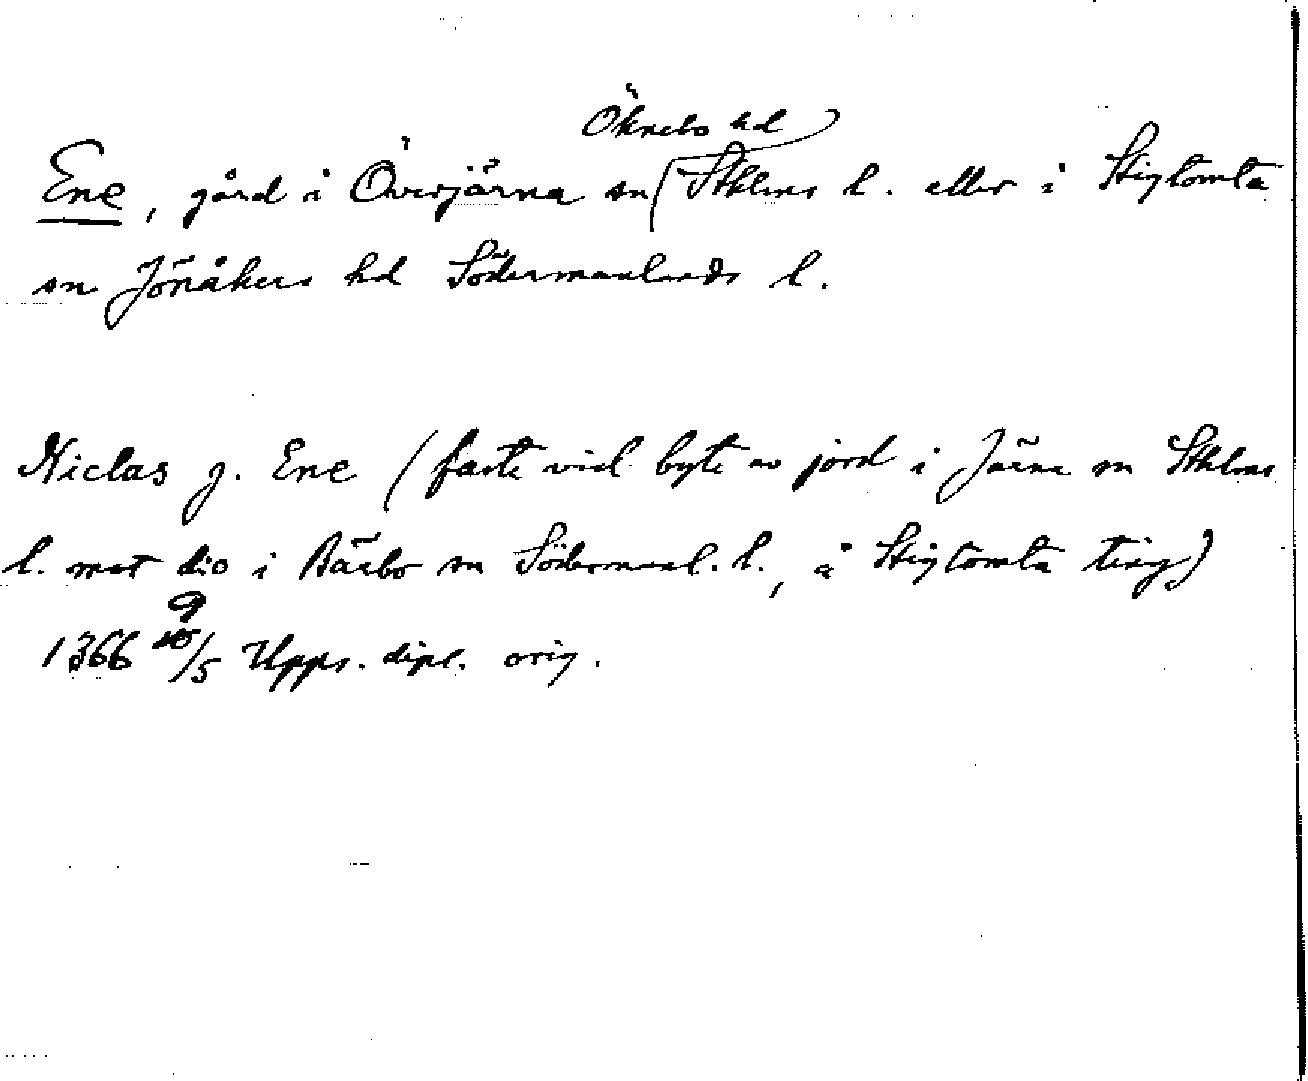 Öknebo hd
Ene, gård i Överjärna sn (Sthlms l. eller i Stigtomta
sn Jönåkers hd Södermanlands l.
Niclas j. Ene (faste vid byte av jord i Järna sn Sthlms
l. mot dio i Bärbo sn Södermanl. l., å Stigtomta ting)
1366 9/5 Upps. dipl. orig.